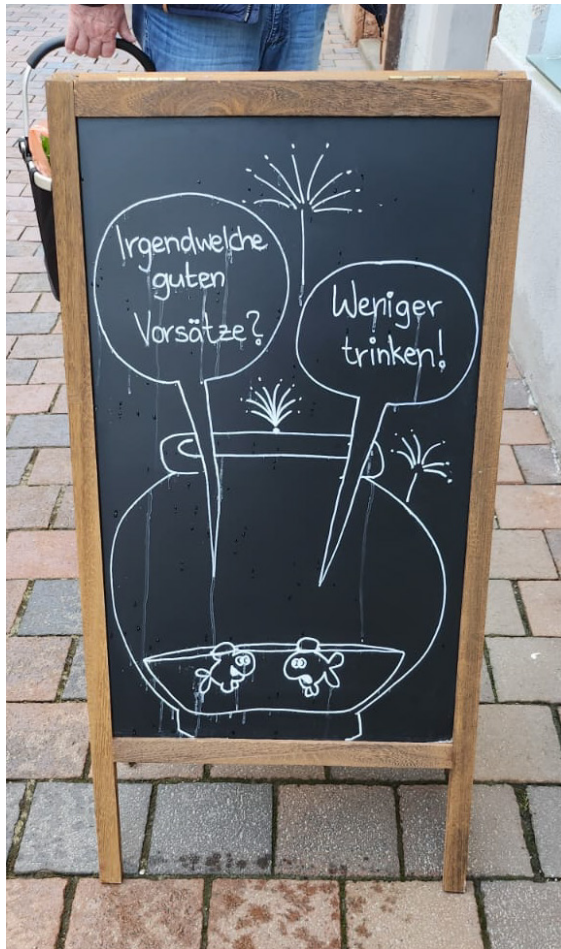 Irgendwelche
guten
Vorsätze?
Weniger
trinken!